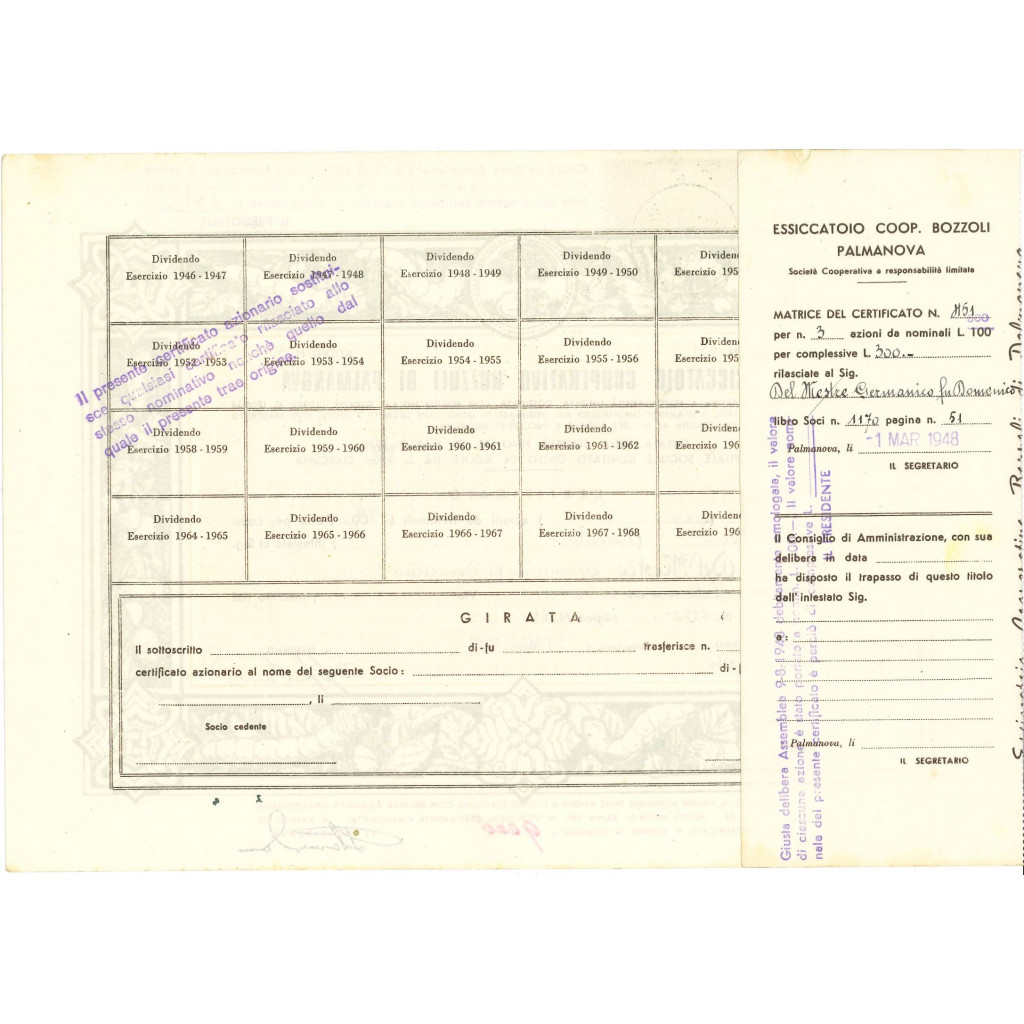 Dividendo
Esercizio 1946 - 1947
Dividendo
Esercizio 1947 - 1948
Dividendo
Esercizio 1948 - 1949
Dividendo
Esercizio 1949 - 1950
Dividen
Esercizio 195
Dividendo
Esercizio 1952 - 1953
Dividendo
Esercizio 1953 - 1954
Dividendo
Esercizio 1954 - 1955
Dividendo
Esercizio 1955 - 1956
Dividen
Esercizio 195
Dividendo
Esercizio 1958 - 1959
Dividendo
Esercizio 1959 - 1960
Dividendo
Esercizio 1960 - 1961
Dividendo
Esercizio 1961 - 1962
Dividen
Esercizio 196
Dividendo
Esercizio 1964 - 1965
Dividendo
Esercizio 1965 - 1966
Dividendo
Esercizio 1966 - 1967
Dividendo
Esercizio 1967 - 1968
Dividen
Esercizio 196
Il presente certificato azionario sostitui-
sce qualsiasi certificato rilasciato allo
stesso nominativo nonchè quello dal
quale il presente trae origine.
GIRATA
Il sottoscritto di - fu trasferisce n.
certificato azionario al nome del seguente Socio : di - f
, li
Socio cedente
ESSICCATOIO COOP. BOZZOLI
PALMANOVA
Società Cooperativa a responsabilità limitata
MATRICE DEL CERTIFICATO N. 1151
per n. 3 azioni da nominali L. 100
per complessive L. 300.-
rilasciate al Sig.
Del Mestre Germanico fu Domenico
libro Soci n. 1170 pagina n. 51
Palmanova, li -1 MAR 1948
IL SEGRETARIO
Il Consiglio di Amministrazione, con sua
delibera in data
ha disposto il trapasso di questo titolo
dall'intestato Sig.
a :
Palmanova, li
IL SEGRETARIO
Giusta delibera Assemblea 9-8-1948 debitamente omologata, il valore
di ciascuna azione è stato portato a
nale del presente certificato è perciò di
IL PRESIDENTE